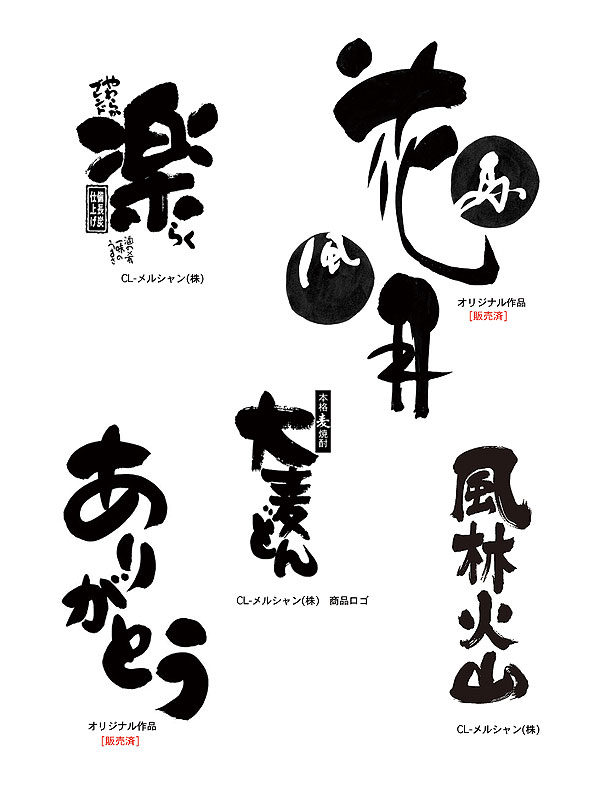 やわらか
ブレンド
楽
らく
備長炭
仕上げ
酒の肴
一味の
うまさ
CL-メルシャン(株)
花
鳥
風
月
オリジナル作品
［販売済］
本格麦焼酎
大麦どん
CL-メルシャン(株)　商品ロゴ
ありがとう
オリジナル作品
［販売済］
風林火山
CL-メルシャン(株)